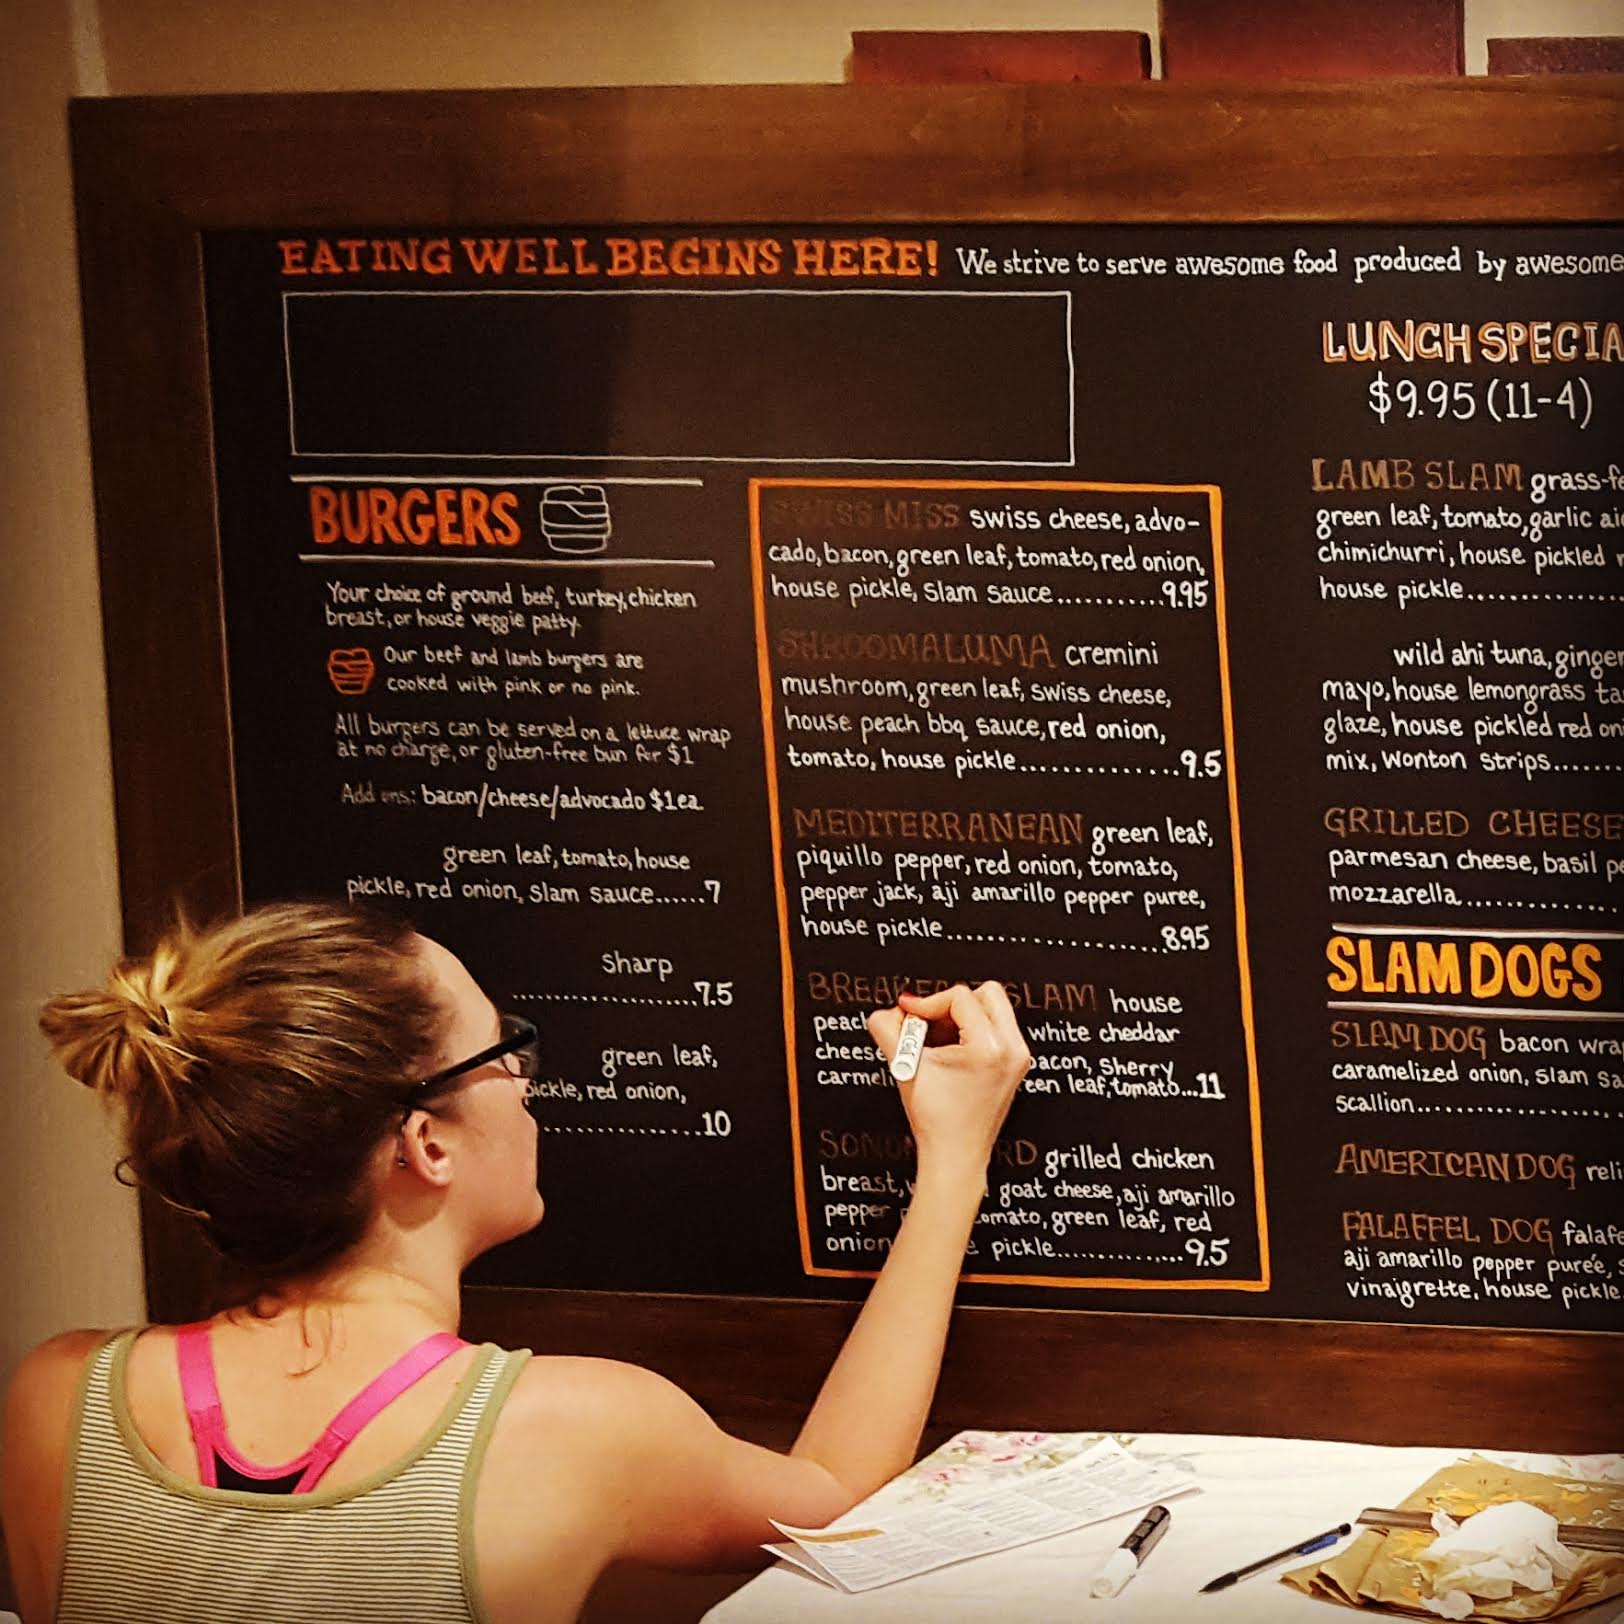 EATING WELL BEGINS HERE! We strive to serve awesome food produced by awesome
BURGERS
Your choice of ground beef, turkey, chicken
breast, or house veggie patty.
Our beef and lamb burgers are
cooked with pink or no pink.
All burgers can be served on a lettuce wrap
at no charge, or gluten-free bun for $1
Add ons: bacon/cheese/advocado $1ea
green leaf, tomato, house
pickle, red onion, slam sauce......7
sharp
....................7.5
green leaf,
pickle, red onion,
................10
SWISS MISS swiss cheese, advo-
cado, bacon, green leaf, tomato, red onion,
house pickle, slam sauce...........9.95
SHROOMALUMA cremini
mushroom, green leaf, swiss cheese,
house peach bbq sauce, red onion,
tomato, house pickle...............9.5
MEDITERRANEAN green leaf,
piquillo pepper, red onion, tomato,
pepper jack, aji amarillo pepper puree,
house pickle....................8.95
BREAKFAST SLAM house
peach white cheddar
cheese bacon, sherry
carmel leaf, tomato...11
grilled chicken
breast, goat cheese, aji amarillo
pepper tomato, green leaf, red
onion pickle.............9.5
LUNCH SPECIA
$9.95 (11-4)
LAMB SLAM grass-fe
green leaf, tomato, garlic ai
chimichurri, house pickled
house pickle...............
wild ahi tuna, ginger
mayo, house lemongrass ta
glaze, house pickled red on
mix, wonton strips.......
GRILLED CHEESE
parmesan cheese, basil pe
mozzarella...............
SLAM DOGS
SLAM DOG bacon wra
caramelized onion, slam sa
scallion....................
AMERICAN DOG reli
FALAFFEL DOG falafe
aji amarillo pepper purée,
vinaigrette, house pickle